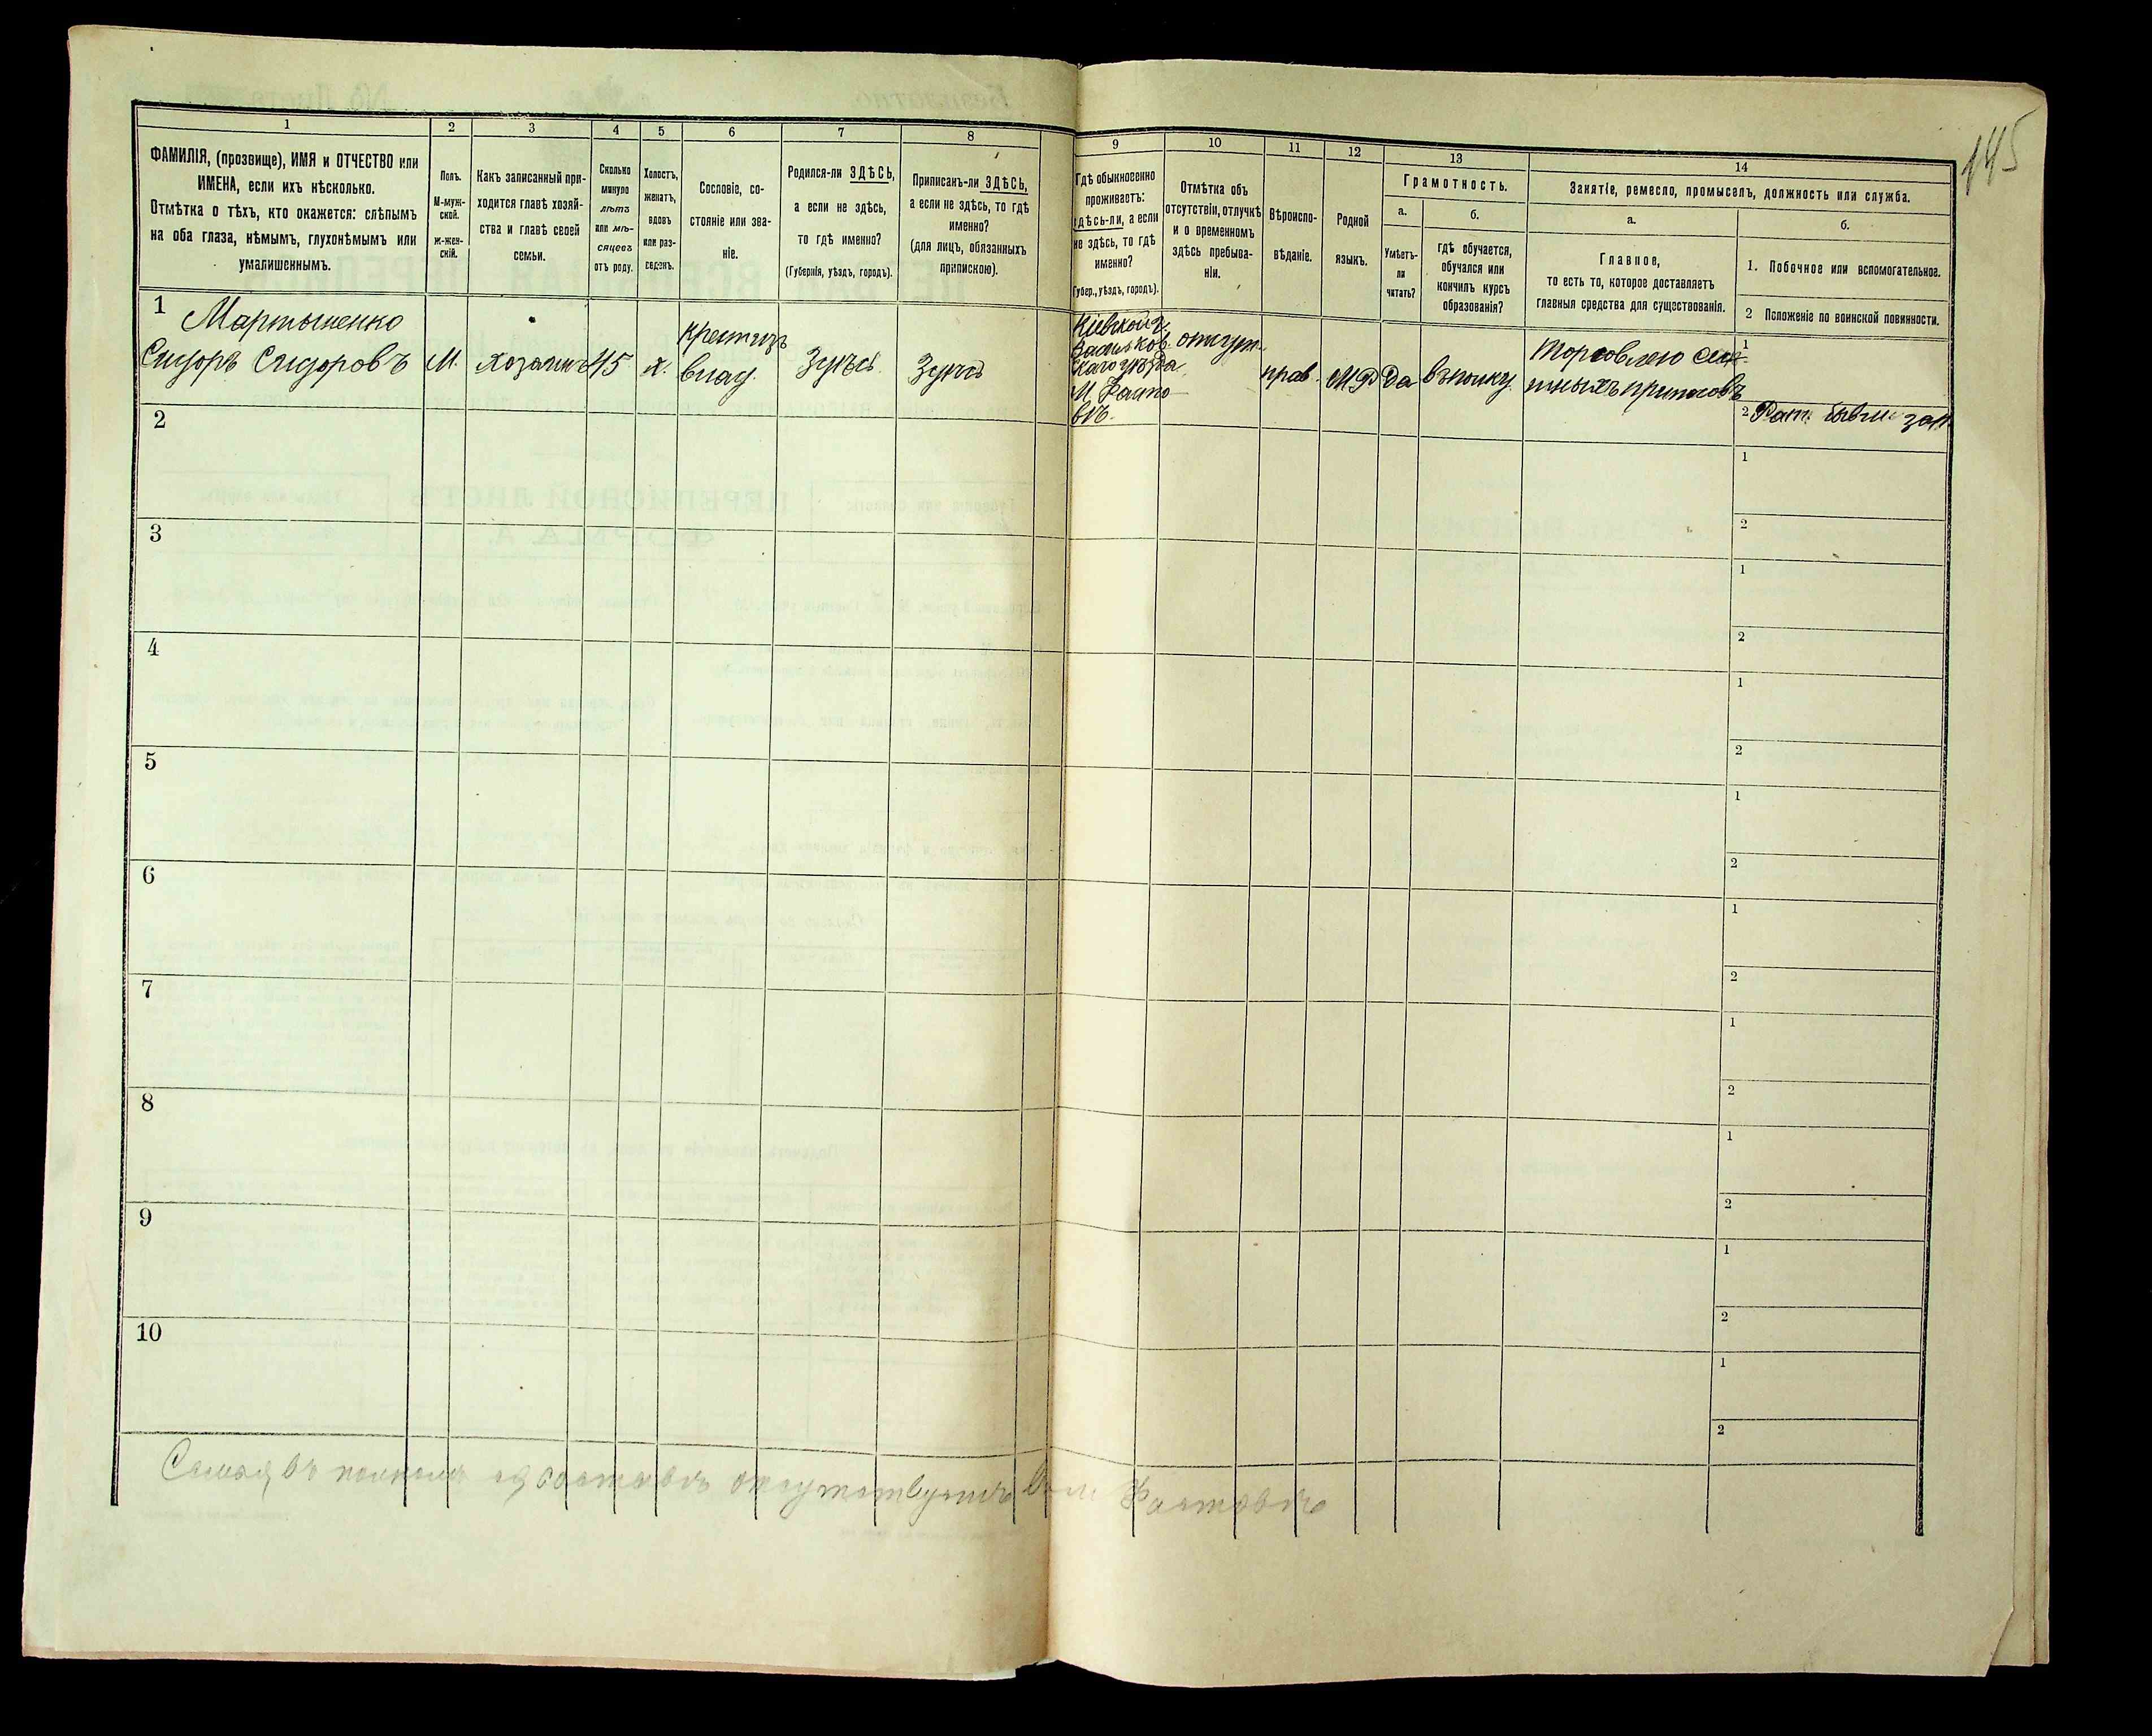 145
1
2
3
4
5
6
7
8
9
10
11
12
13
14
ФАМИЛІЯ, (прозвище), ИМЯ и ОТЧЕСТВО или
ИМЕНА, если ихъ нѣсколько.
Отмѣтка о тѣхъ, кто окажется: слѣпымъ
на оба глаза, нѣмымъ, глухонѣмымъ или
умалишеннымъ.
Полъ.
М-муж-
ской.
ж-жен-
скій.
Какъ записанный при-
ходится главѣ хозяй-
ства и главѣ своей
семьи.
Сколько
минуло
лѣтъ
или мѣ-
сяцевъ
отъ роду.
Холостъ,
женатъ,
вдовъ
или раз-
веденъ.
Сословіе, со-
стояніе или зва-
ніе.
Родился-ли ЗДѢСЬ,
а если не здѣсь,
то гдѣ именно?
(Губернія, уѣздъ, городъ).
Приписанъ-ли ЗДѢСЬ,
а если не здѣсь, то гдѣ
именно?
(для лицъ, обязанныхъ
припискою).
Гдѣ обыкновенно
проживаетъ:
здѣсь-ли, а если
не здѣсь, то гдѣ
именно?
(Губер., уѣздъ, городъ).
Отмѣтка объ
отсутствіи, отлучкѣ
и о временномъ
здѣсь пребыва-
ніи.
Вѣроиспо-
вѣданіе.
Родной
языкъ.
Грамотность.
а.
Умѣетъ-
ли
читать?
б.
гдѣ обучается,
обучался или
кончилъ курсъ
образованія?
Занятіе, ремесло, промыселъ, должность или служба.
а.
Главное,
то есть то, которое доставляетъ
главныя средства для существованія.
б.
1. Побочное или вспомогательное.
2 Положеніе по воинской повинности.
1
Мартыненко
Сидоръ Сидоровъ
М.
хозяинъ
45
ж.
крестизъ
влад.
Здѣсь
Здѣсь
Кіевской г.
Васильков
скаго уѣзда
М. Фасто
вѣ.
отсут.
прав.
М.Р
Да
въ полку
Торговлею
припасовъ
1
2 Рат.
зап.
2
1
2
3
1
2
4
1
2
5
1
2
6
1
2
7
1
2
8
1
2
9
1
2
10
1
2
Семья, въ полномъ составѣ отсутствуетъ Фастовѣ